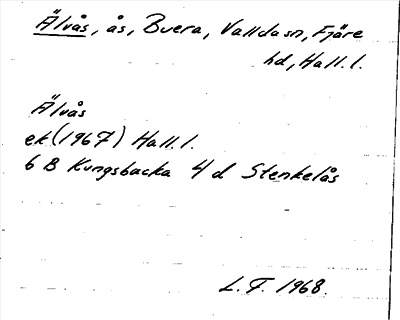 Älvås, ås, Buera, Valldasn, Fjäre
hd, Hall. l.
Älvås
ek (1967) Hall. l.
6 B Kungsbacka 4 d Stenkelås
L. F. 1968.